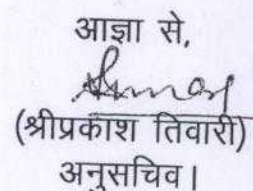 आज्ञा से,
(श्रीप्रकाश तिवारी)
अनुसचिव।